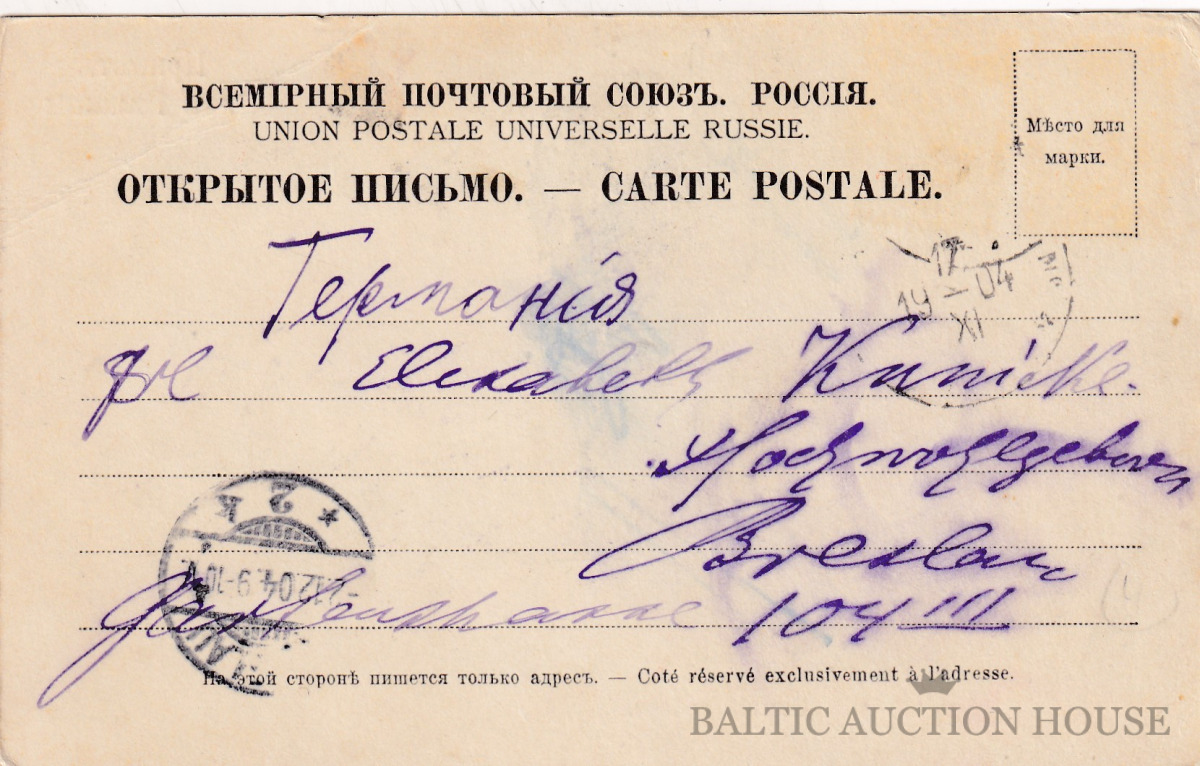 ВСЕМІРНЫЙ ПОЧТОВЫЙ СОЮЗЪ. РОССІЯ.
UNION POSTALE UNIVERSELLE RUSSIE.
Мѣсто для
марки.
ОТКРЫТОЕ ПИСЬМО. — CARTE POSTALE.
Германія
17
19 XI 04
Elisabeth Kunicke.
Hochwohlgeboren
Breslau
2 k
12.04.9-10
Gartenstrasse 104 III
На этой сторонѣ пишется только адресъ. — Coté réservé exclusivement à l'adresse.
BALTIC AUCTION HOUSE